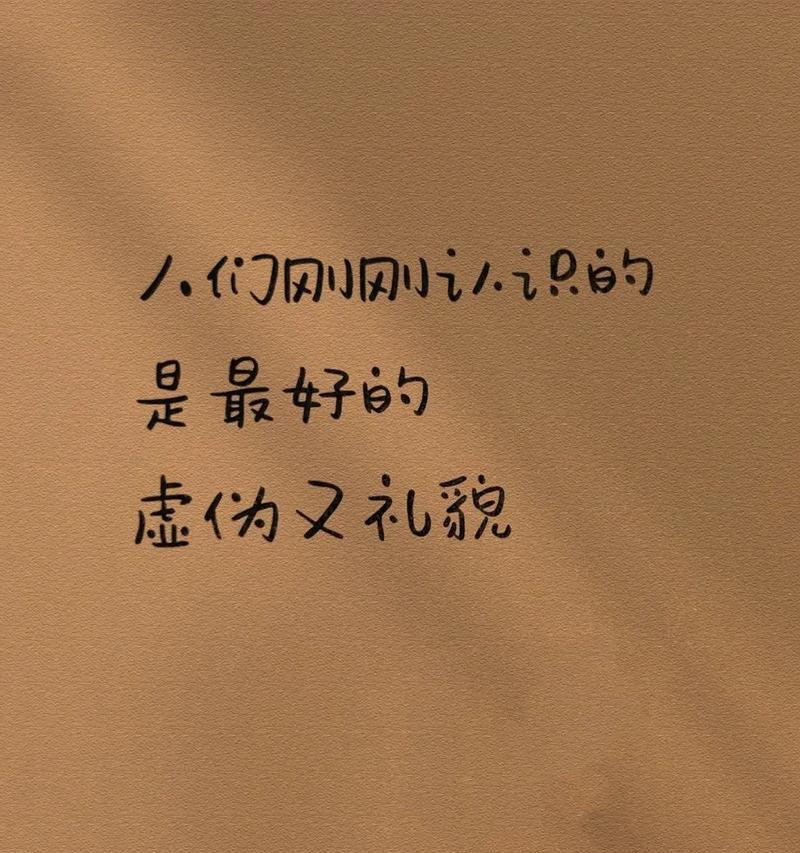 人们刚刚认识的
是最好的
虚伪又礼貌